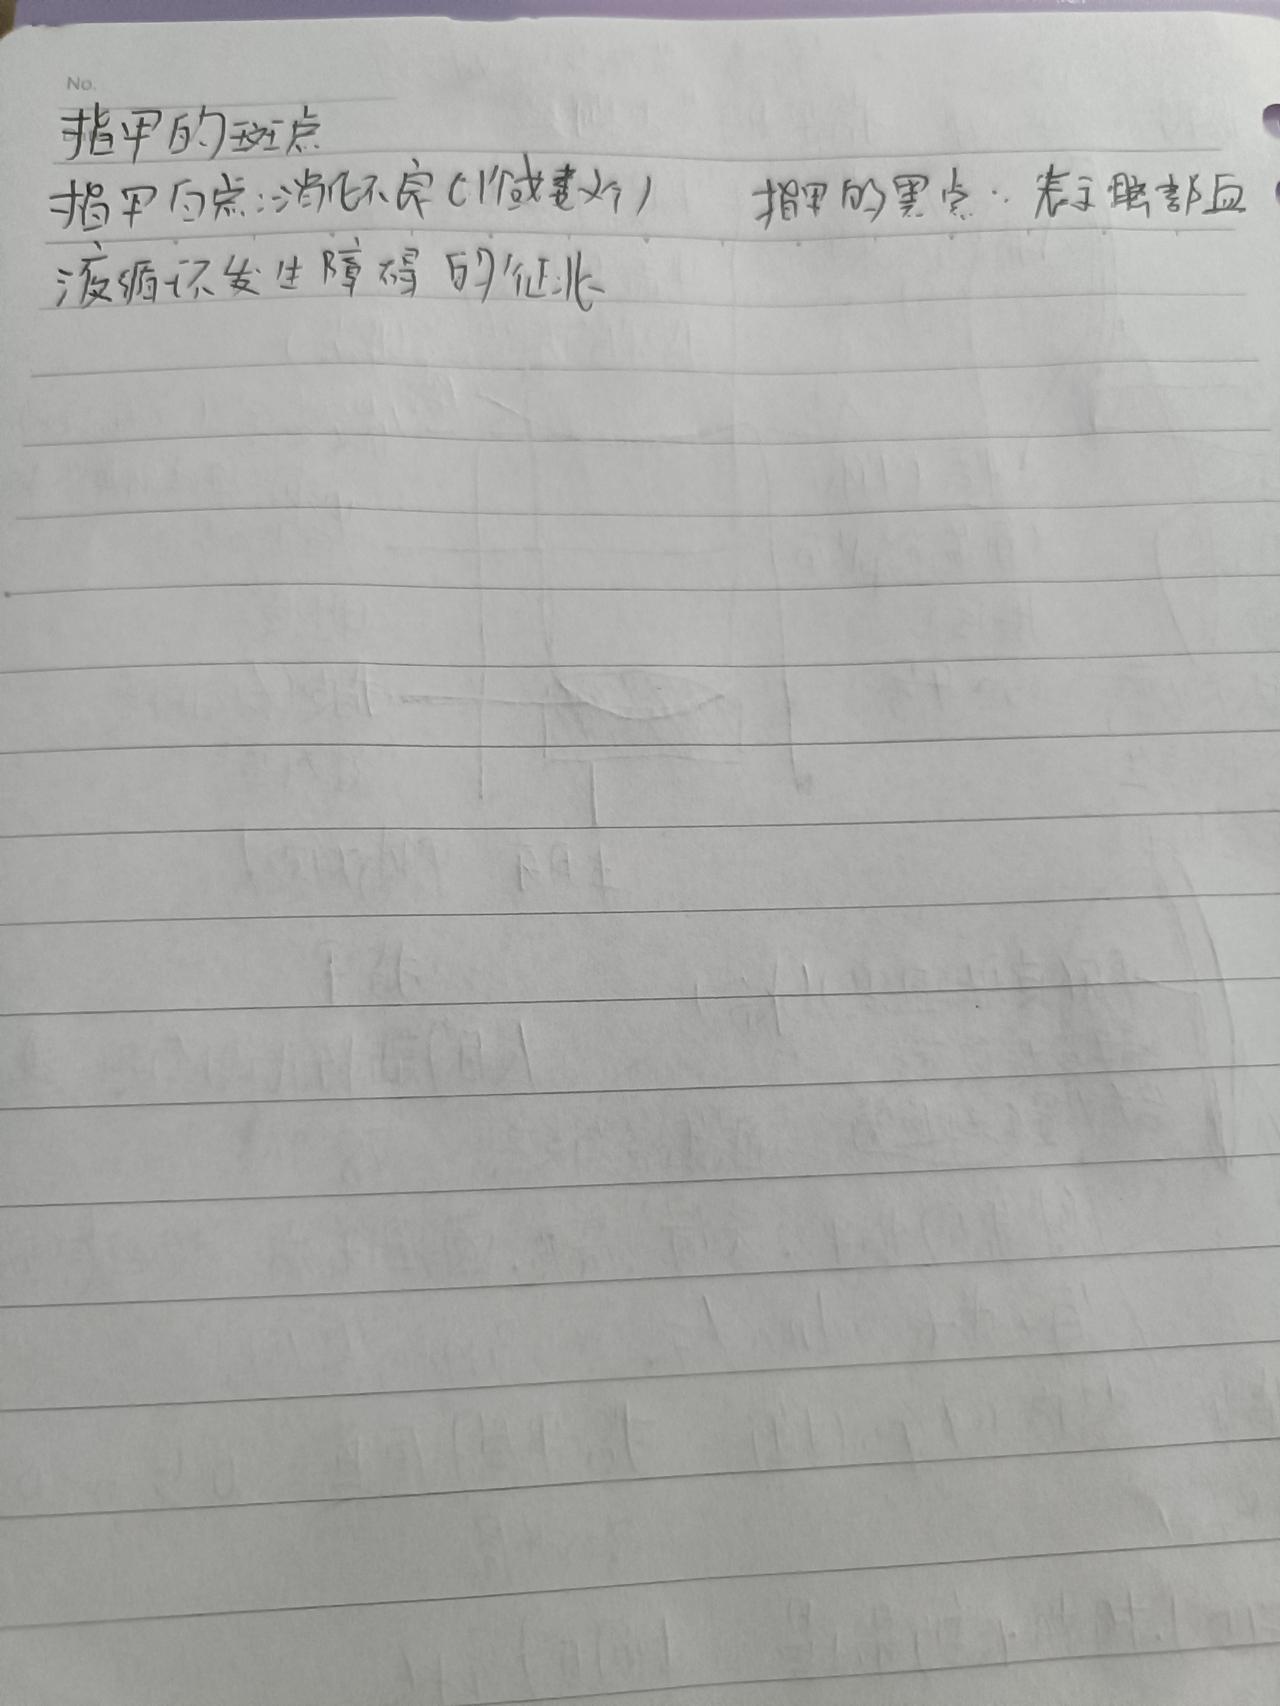 No.
指甲的斑点
指甲白点:消化不良(1个或数个) 指甲的黑点:表示眼部血
液循环发生障碍的征兆